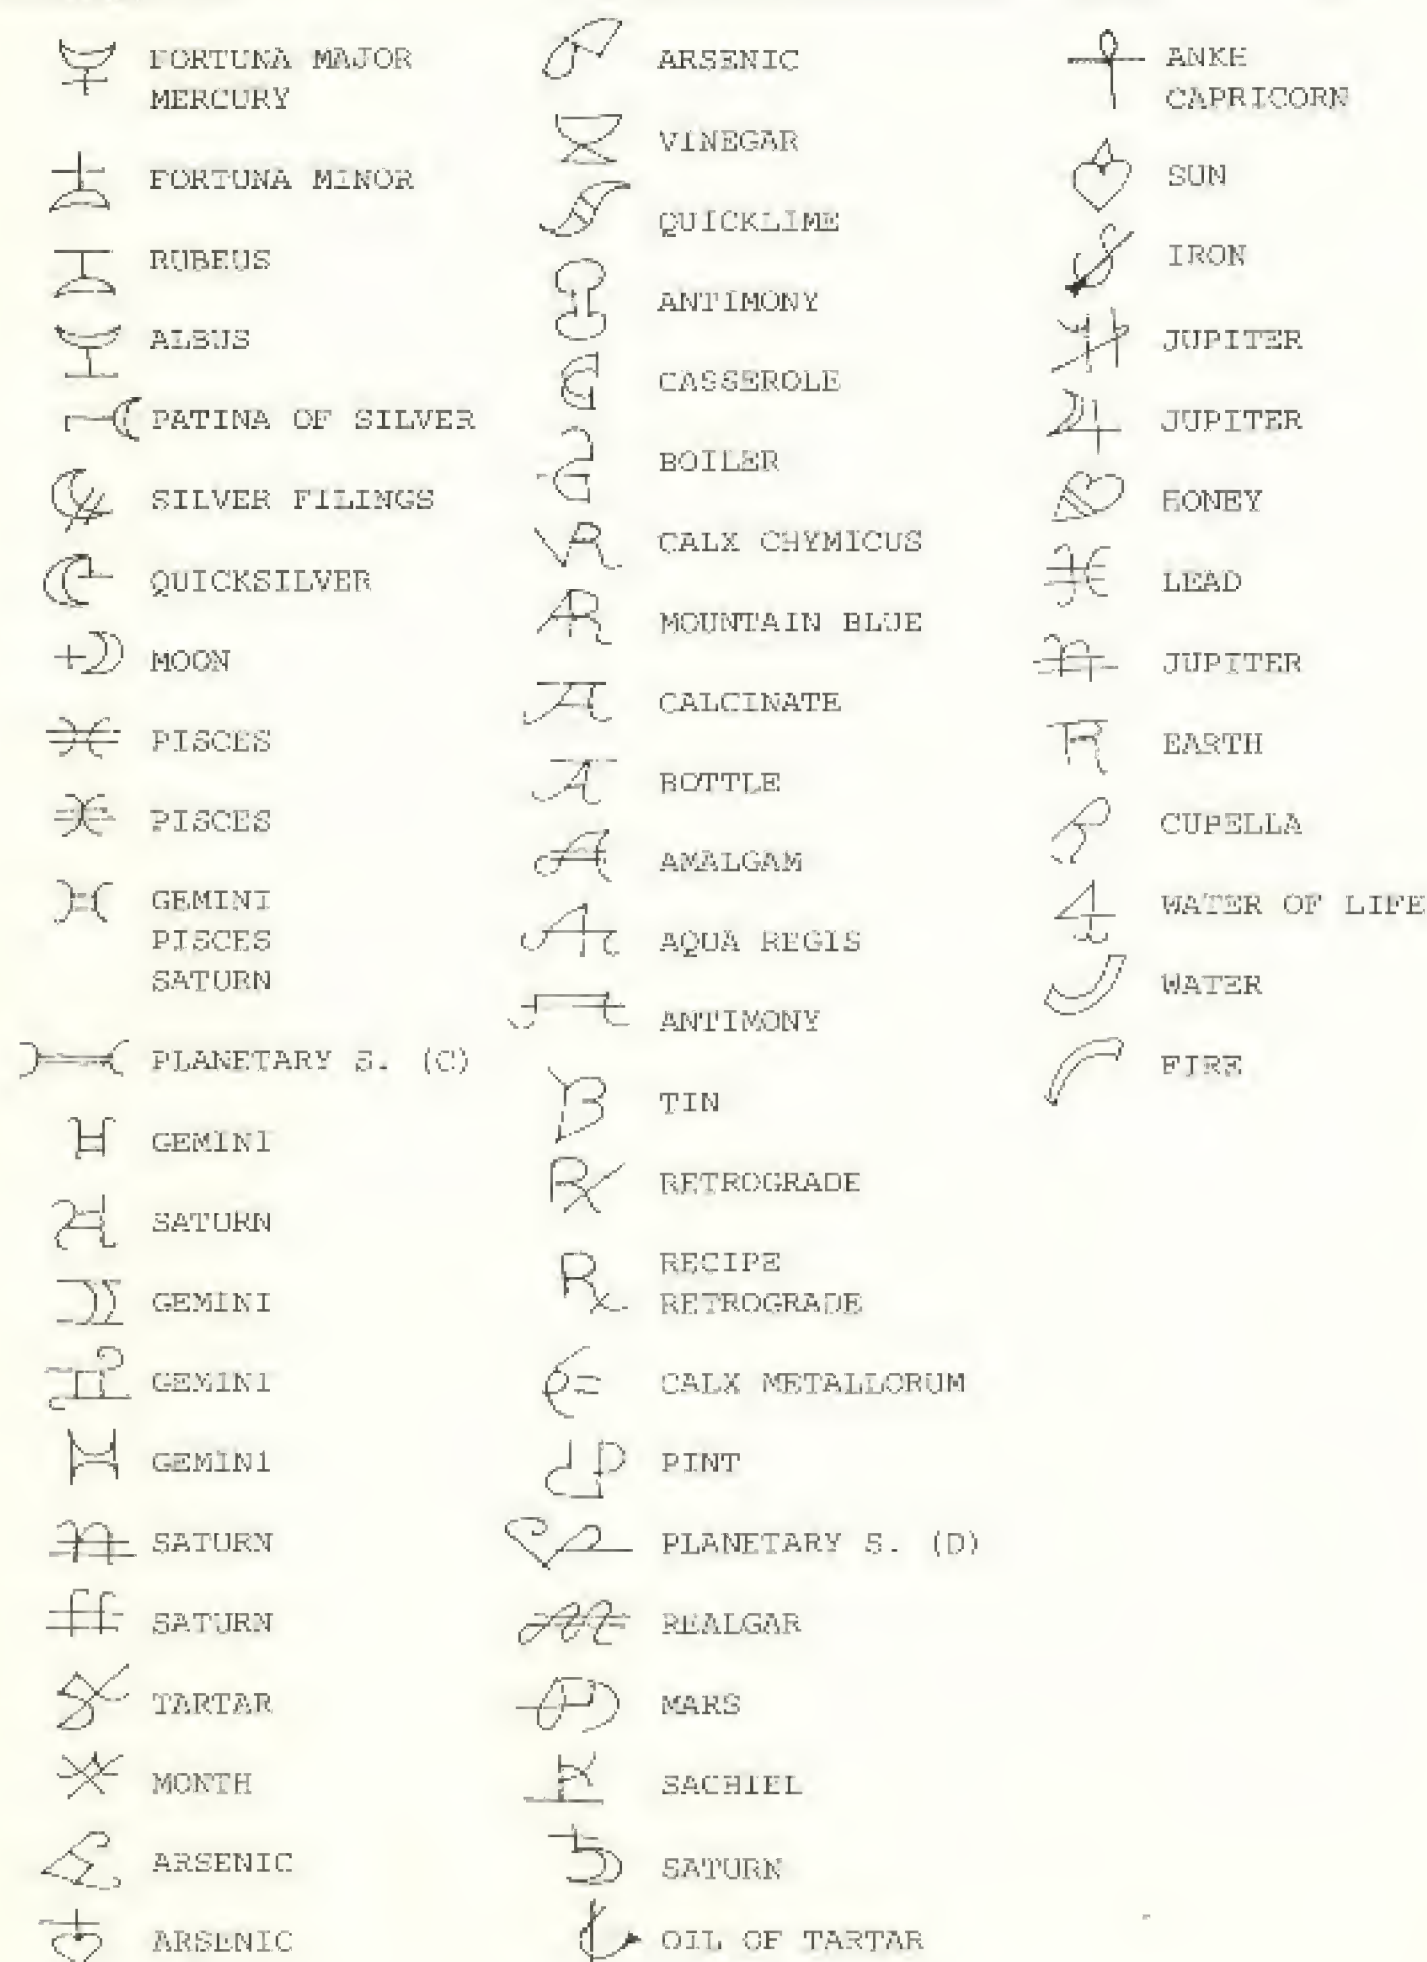 FORTUNA MAJOR
MERCURY
FORTUNA MINOR
RUBEUS
ALBUS
PATINA OF SILVER
SILVER FILINGS
QUICKSILVER
MOON
PISCES
PISCES
GEMINI
PISCES
SATURN
PLANETARY S. (C)
GEMINI
SATURN
GEMINI
GEMINI
GEMINI
SATURN
SATURN
TARTAR
MONTH
ARSENIC
ARSENIC
ARSENIC
VINEGAR
QUICKLIME
ANTIMONY
CASSEROLE
BOILER
CALX CHYMICUS
MOUNTAIN BLUE
CALCINATE
BOTTLE
AMALGAM
AQUA REGIS
ANTIMONY
TIN
RETROGRADE
RECIPE
RETROGRADE
CALX METALLORUM
PINT
PLANETARY S. (D)
REALGAR
MARS
SACHIEL
SATURN
OIL OF TARTAR
ANKH
CAPRICORN
SUN
IRON
JUPITER
JUPITER
HONEY
LEAD
JUPITER
EARTH
CUPELLA
WATER OF LIFE
WATER
FIRE